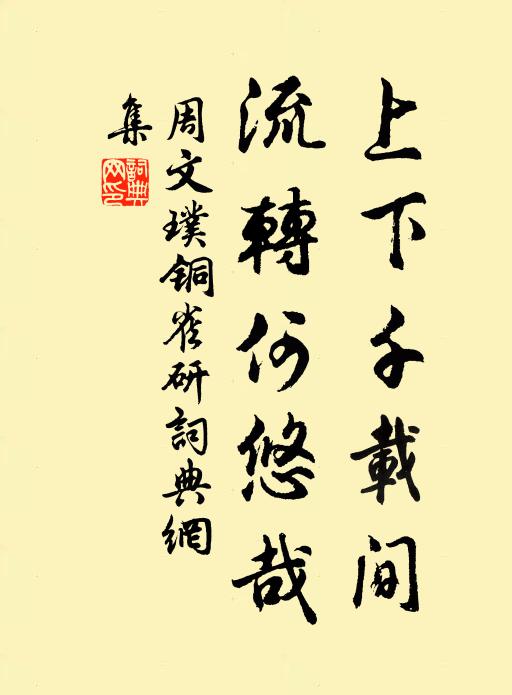 上下千載间
流轉何悠哉
周文璞铜雀研詞典網
集
詞典
网印